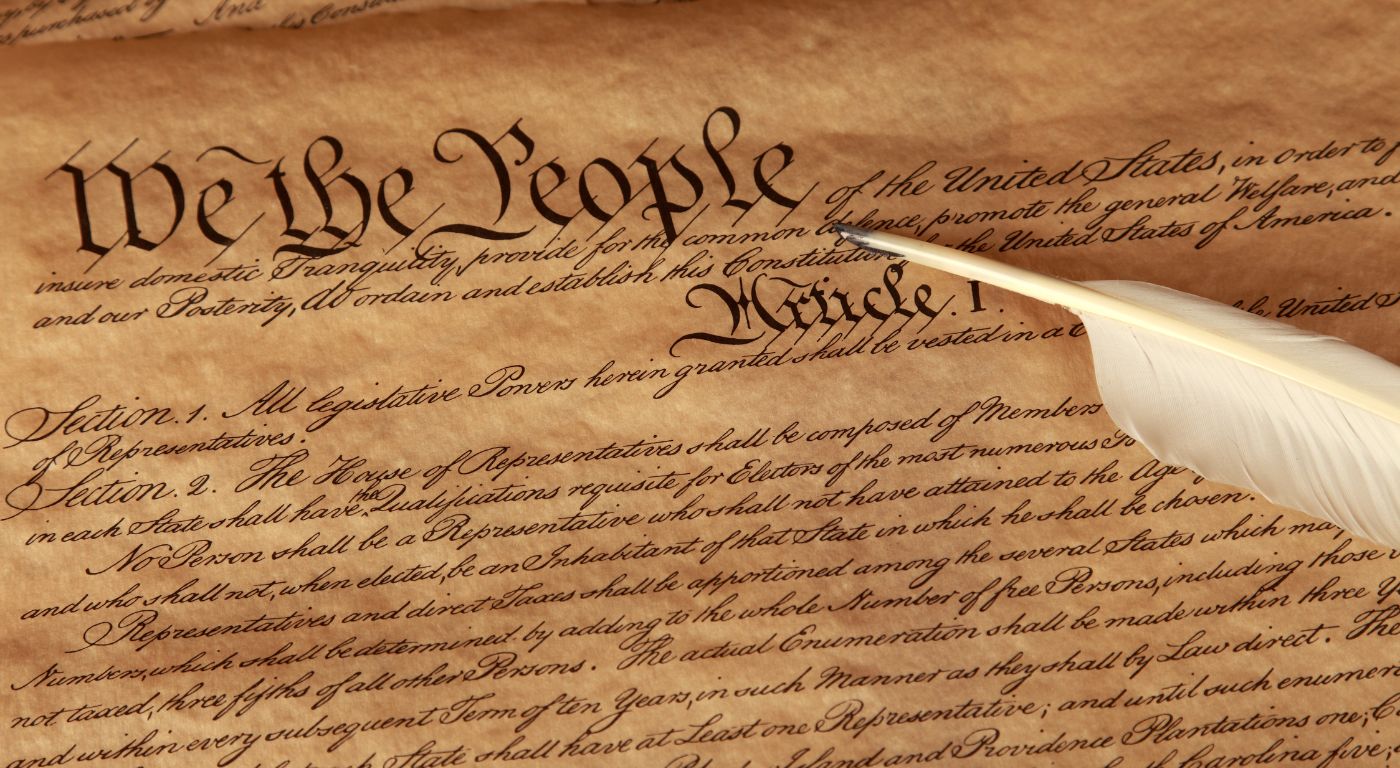 purchased by And this Cons
We the People of the United States, in Order to f
insure domestic Tranquility, provide for the common defence, promote the general Welfare, and
and our Posterity, do ordain and establish this Constitution for the United States of America.
Article. I.
Section. 1. All legislative Powers herein granted shall be vested in a C United S
of Representatives.
Section. 2. The House of Representatives shall be composed of Members
in each State shall have the Qualifications requisite for Electors of the most numerous
No Person shall be a Representative who shall not have attained to the Age
and who shall not, when elected, be an Inhabitant of that State in which he shall be chosen.
Representatives and direct Taxes shall be apportioned among the several States which may
Numbers, which shall be determined by adding to the whole Number of free Persons, including those
not taxed, three fifths of all other Persons. The actual Enumeration shall be made within three Y
and within every subsequent Term of ten Years, in such Manner as they shall by Law direct. The
State shall have at Least one Representative; and until such enumer
Island and Providence Plantations one, C
Carolina five,